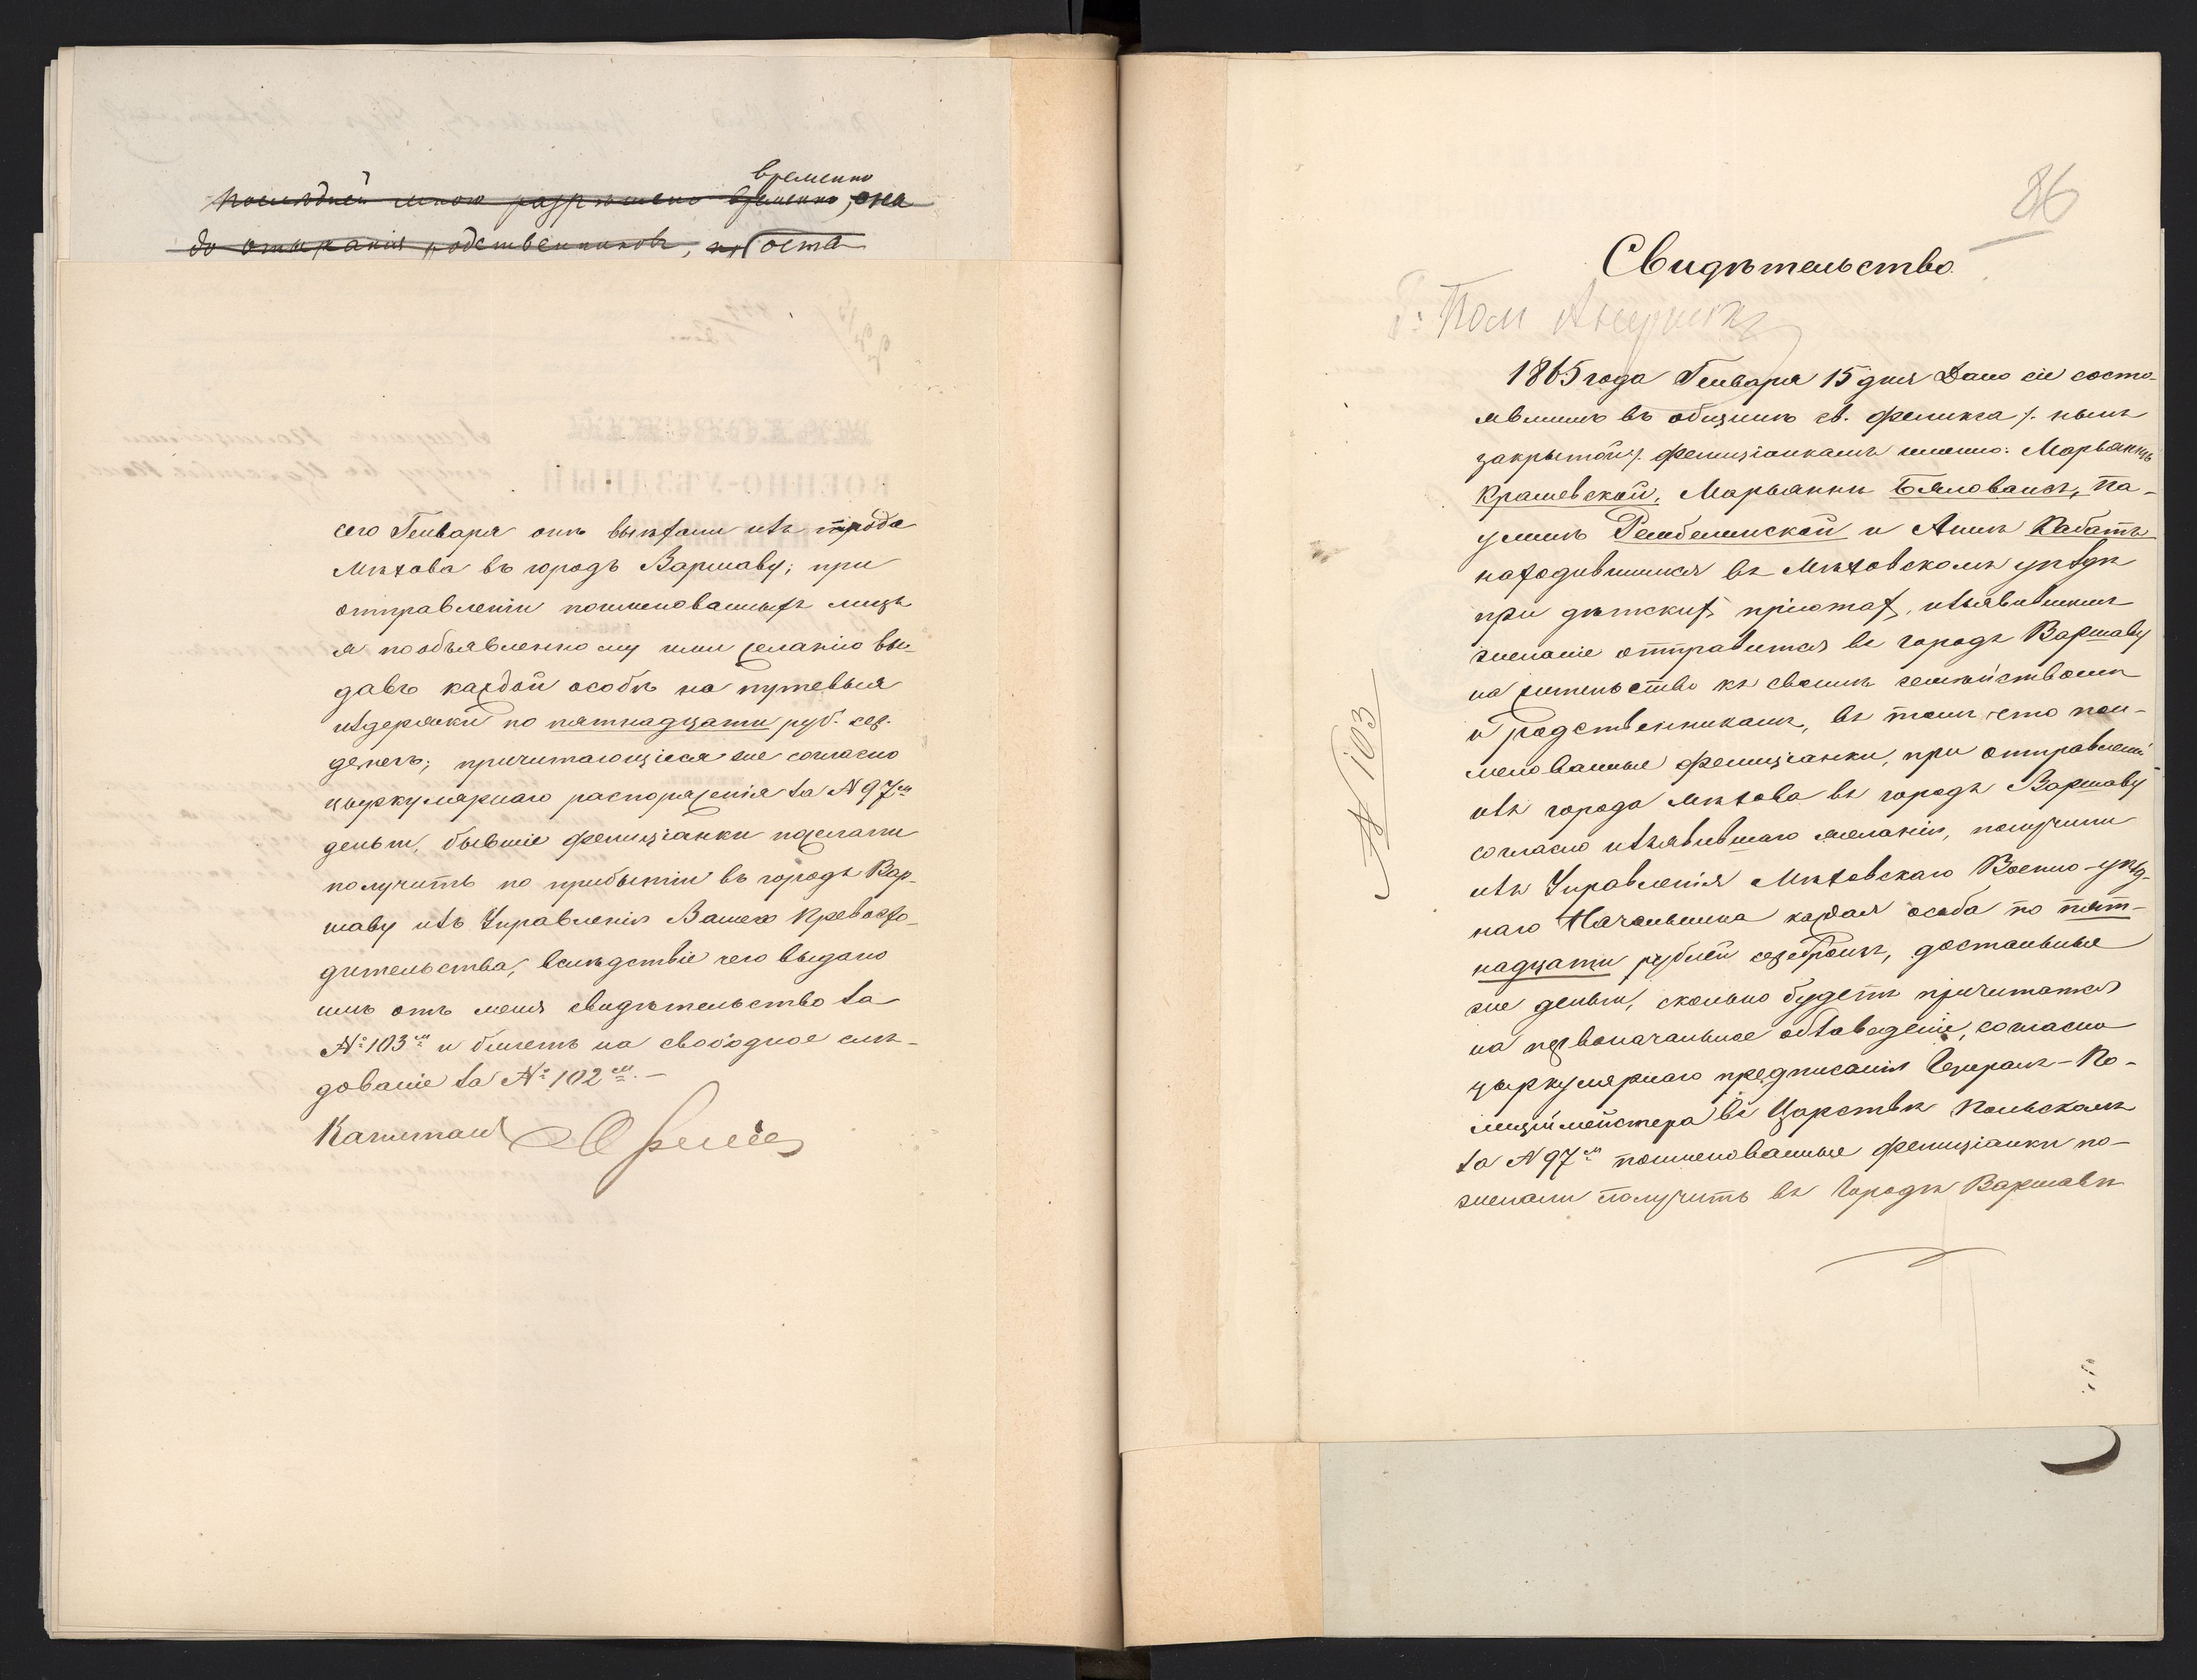 временно
послѣдней мною разрѣшено временно, она
до отысканія родственниковъ, оста
сего Генваря онѣ выѣхали изъ города
Мѣхова въ городъ Варшаву; при
отправленіи поименованныхъ лицъ
я по объявленному ими желанію вы-
давъ каждой особѣ на путевыя
издержки по пятнадцати руб. сер.
денегъ; причитающіеся же согласно
циркулярнаго распоряженія за № 97м
деньги, бывшіе фелиціанки пожелали
получить по прибытіи въ городъ Вар-
шаву изъ Управленія Вашего Превосхо-
дительства, вслѣдствіе чего выдано
имъ отъ меня свидѣтельство за
№ 103м и билетъ на свободное слѣ-
дованіе за № 102м.—
Капитанъ
86
Свидѣтельство
№ 103
1865 года Генваря 15 дня Дано сіе состо-
явшимъ въ общинѣ св. Феликса /. нынѣ
закрытой ./ фелиціанкамъ именно: Марьяннѣ
Крашевской, Марьянни Бяловансъ, Па-
улинѣ Рембелинской и Аннѣ Кабатъ
находившимся въ Мѣховскомъ уѣздѣ
при дѣтскихъ пріютахъ, изъявившимъ
желаніе отправится въ городъ Варшаву
на жительство къ своимъ семѣйствамъ
и родственникамъ, въ томъ, что пои-
менованные фелиціанки, при отправленіи
изъ города Мѣхова въ городъ Варшаву
согласно изъявившаго желанія, получили
изъ Управленія Мѣховскаго Военно-уѣзд-
наго Начальника каждая особа по пят-
надцати рублей серебромъ, достальные
же деньги, сколько будетъ причитатся
на первоначальное обзаведеніе, согласно
циркулярнаго предписанія Генералъ-По-
лиціймейстера въ Царствѣ Польскомъ
за № 97м поименованные фелиціанки по-
желали получить въ Городѣ Варшавѣ